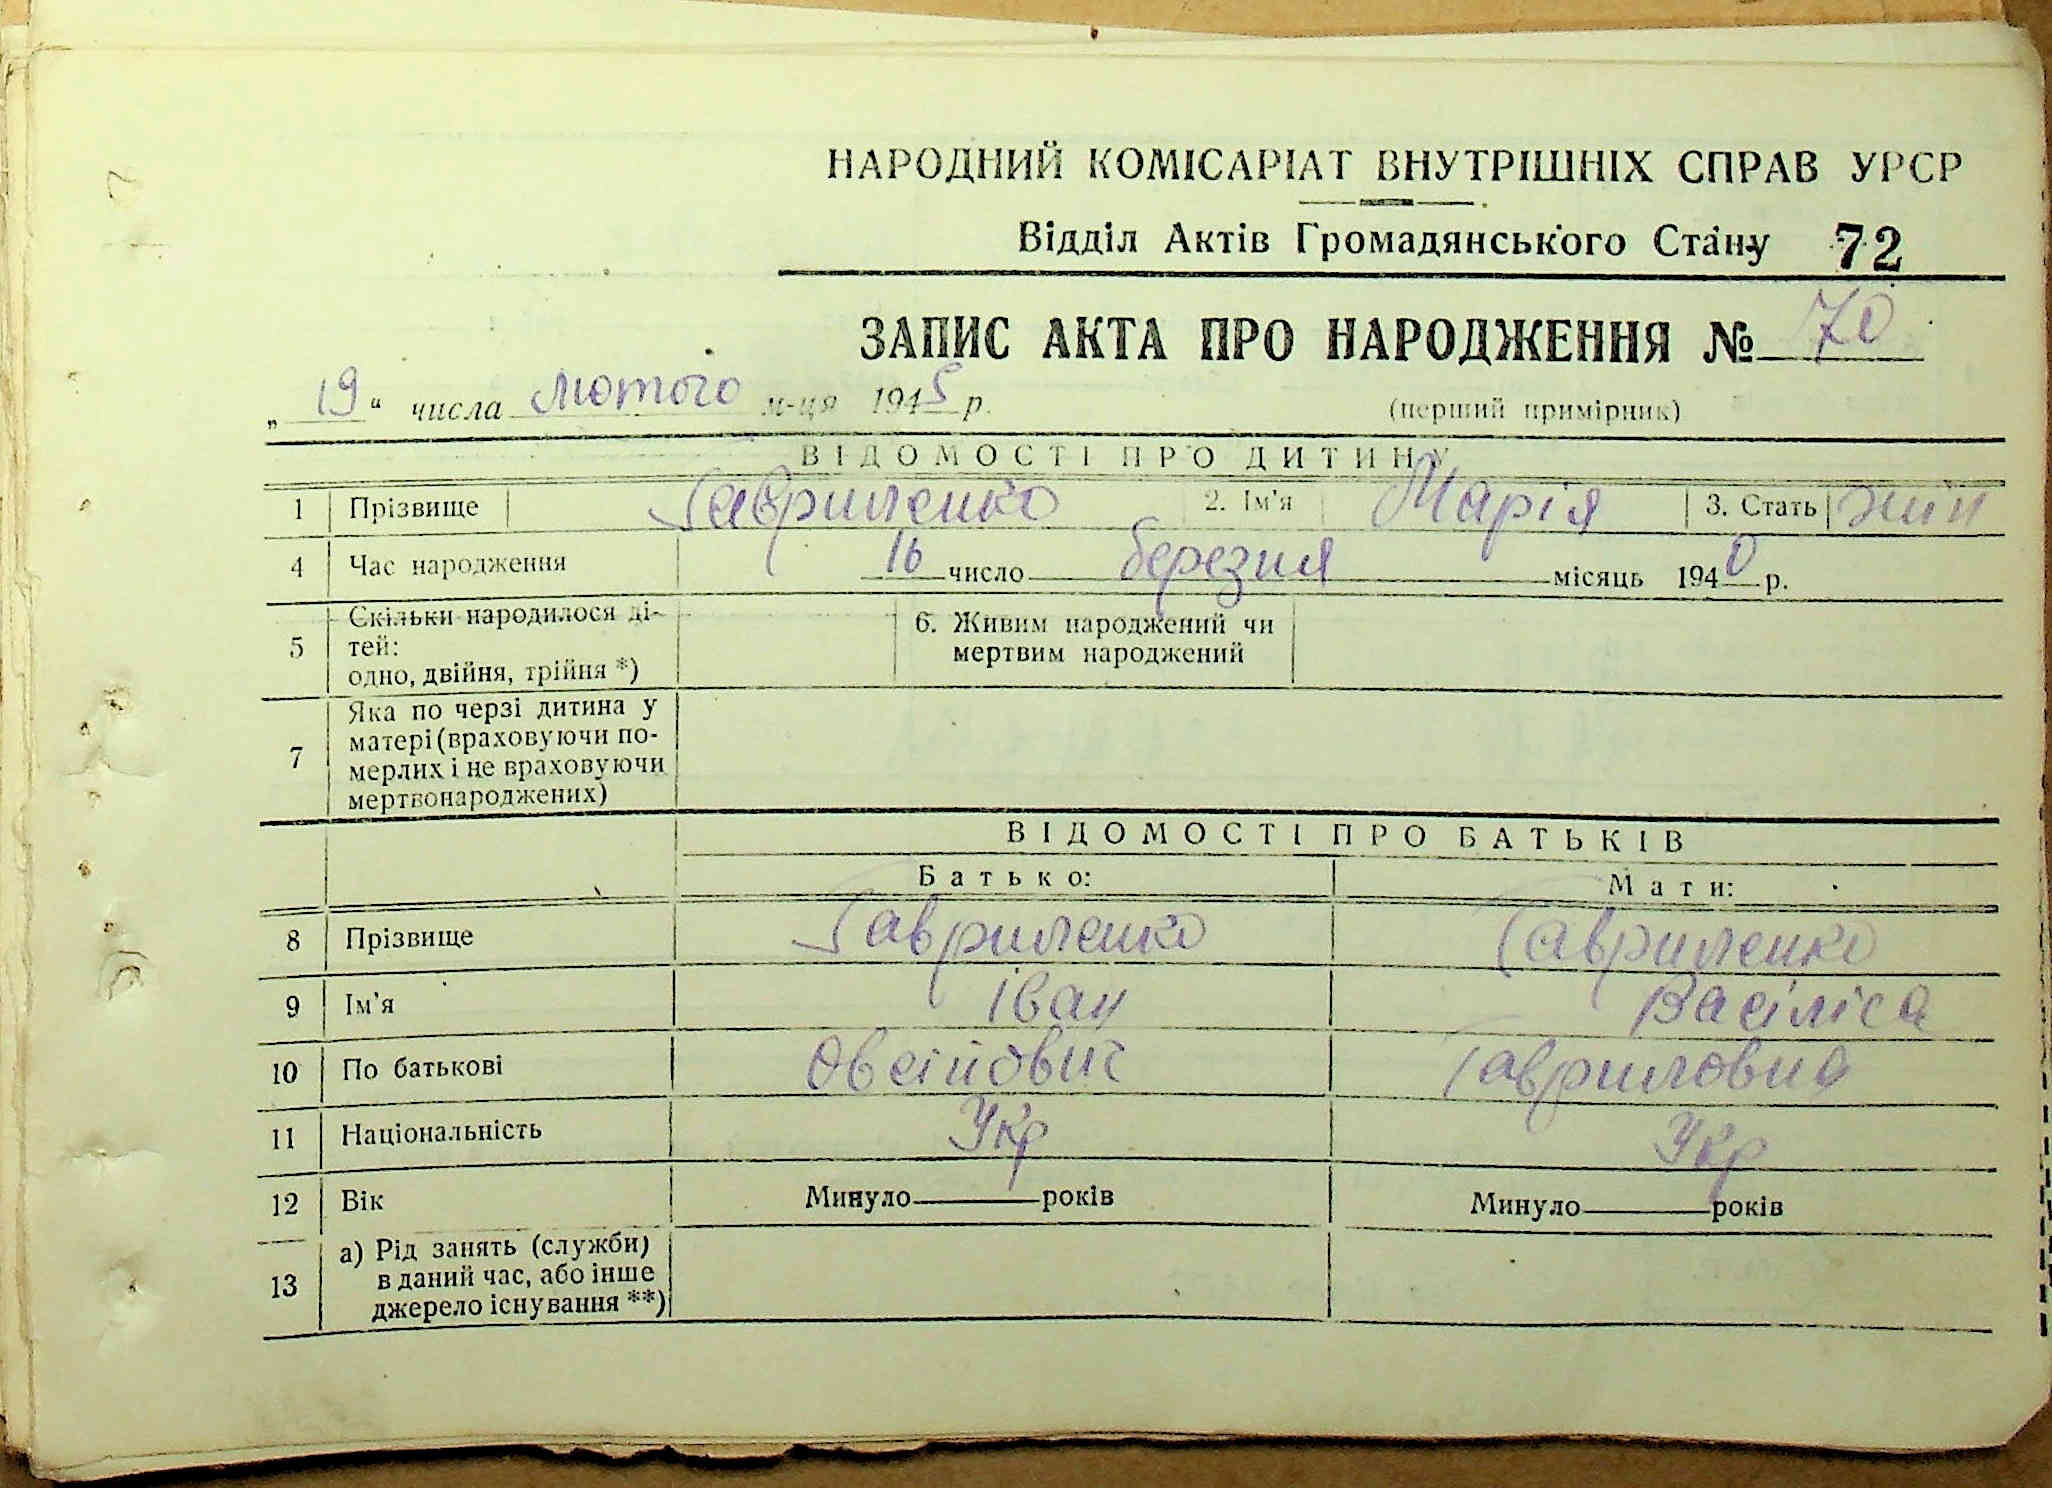 НАРОДНИЙ КОМІСАРІАТ ВНУТРІШНІХ СПРАВ УРСР
Відділ Актів Громадянського Стану 72
ЗАПИС АКТА ПРО НАРОДЖЕННЯ № 70
„ 19 “ числа лютого м-ця 1945 р. (перший примірник)
ВІДОМОСТІ ПРО ДИТИНУ
1 Прізвище Гавриленко 2. Ім'я Марія 3. Стать
4 Час народження 16 число березня місяць 1940 р.
5 Скільки народилося ді-
тей:
одно, двійня, трійня *)
6. Живим народжений чи
мертвим народжений
7 Яка по черзі дитина у
матері (враховуючи по-
мерлих і не враховуючи
мертвонароджених)
ВІДОМОСТІ ПРО БАТЬКІВ
Батько: Мати:
8 Прізвище Гавриленко Гавриленко
9 Ім'я Іван Васіліса
10 По батькові Овсійович Гавриловна
11 Національність Укр Укр
12 Вік Минуло років Минуло років
13 а) Рід занять (служби)
в даний час, або інше
джерело існування **)